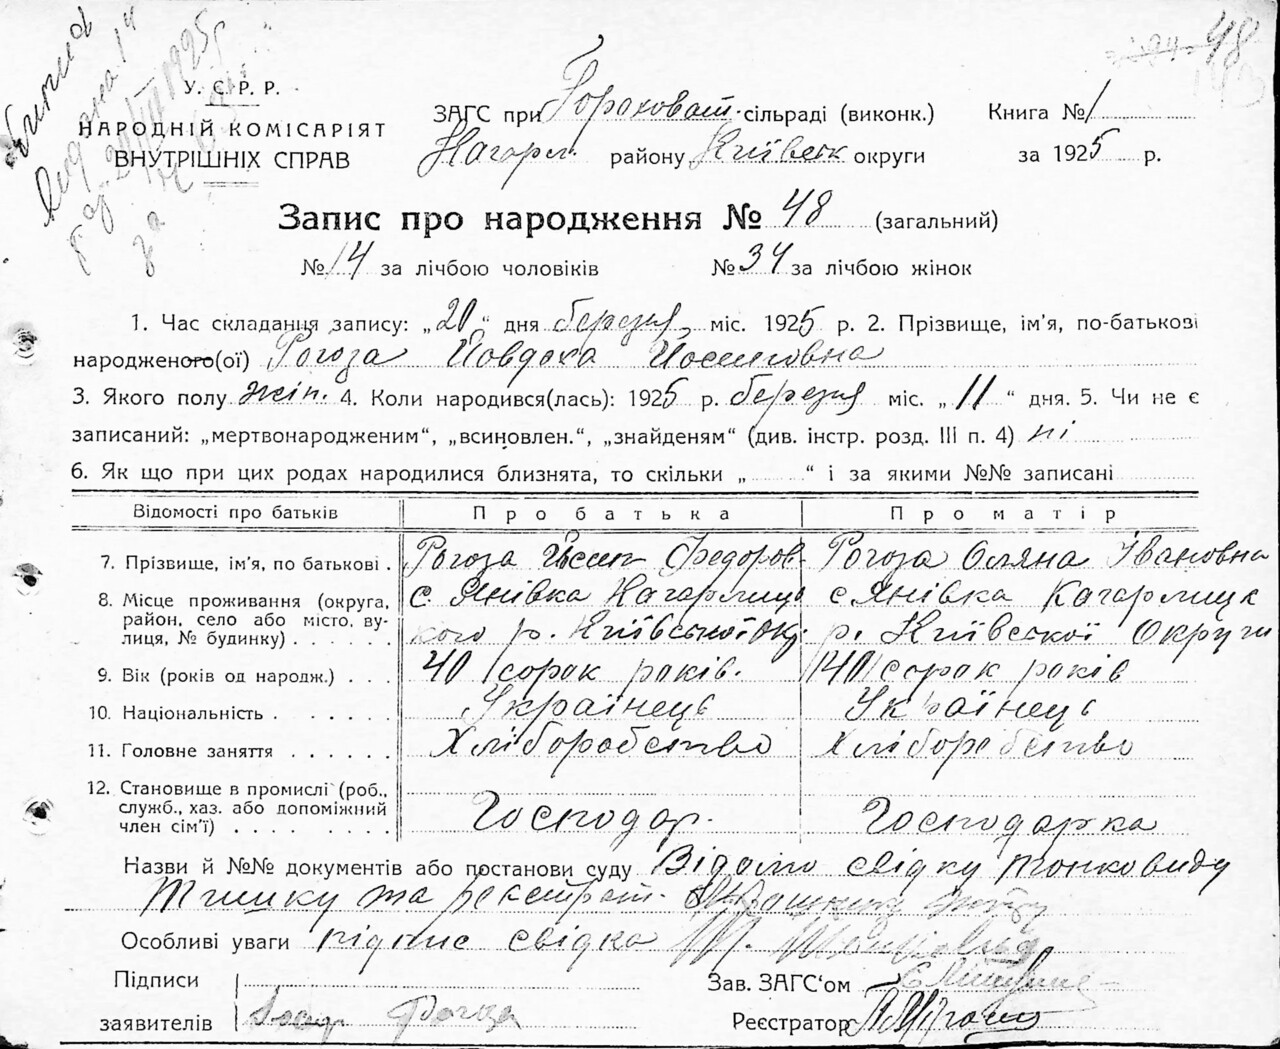 48
У.С.Р.Р.
НАРОДНІЙ КОМІСАРІЯТ
ВНУТРІШНІХ СПРАВ
ЗАГС при Гороховат. сільраді (виконк.)
Кагарл. району Київськ округи
Книга № 1
за 1925 р.
Запис про народження № 48 (загальний)
№ 14 за лічбою чоловіків № 34 за лічбою жінок
1. Час складання запису: „20“ дня березня міс. 1925 р. 2. Прізвище, ім'я, по-батькові
народженого(ої) Рогоза Йовдоха Йосиповна
3. Якого полу жін. 4. Коли народився(лась): 1925 р. березня міс. „11“ дня. 5. Чи не є
записаний: „мертвонародженим“, „всиновлен.“, „знайденям“ (див. інстр. розд. III п. 4) ні
6. Як що при цих родах народилися близнята, то скільки „ “ і за якими №№ записані
Відомості про батьків Про батька Про матір
7. Прізвище, ім'я, по батькові . Рогоза Йосип Федоров. Рогоза Оляна Івановна
8. Місце проживання (округа, район, село або місто, вулиця, № будинку) с. Янівка Кагарлицького р. Київської Окр. с Янівка Кагарлицьк р. Київської Округи
9. Вік (років од народж.) . . . 40 (сорок років. 40 (сорок років
10. Національність . . . . . . Українець Українець
11. Головне заняття . . . . . . Хліборобство Хліборобство
12. Становище в промислі (роб., служб., хаз. або допоміжний член сім'ї) Господар. Господарка
Назви й №№ документів або постанови суду Відомо свідку
та реєстрат.
Особливі уваги підпис свідка
Підписи
заявителів Рогоза
Зав. ЗАГС'ом
Реєстратор